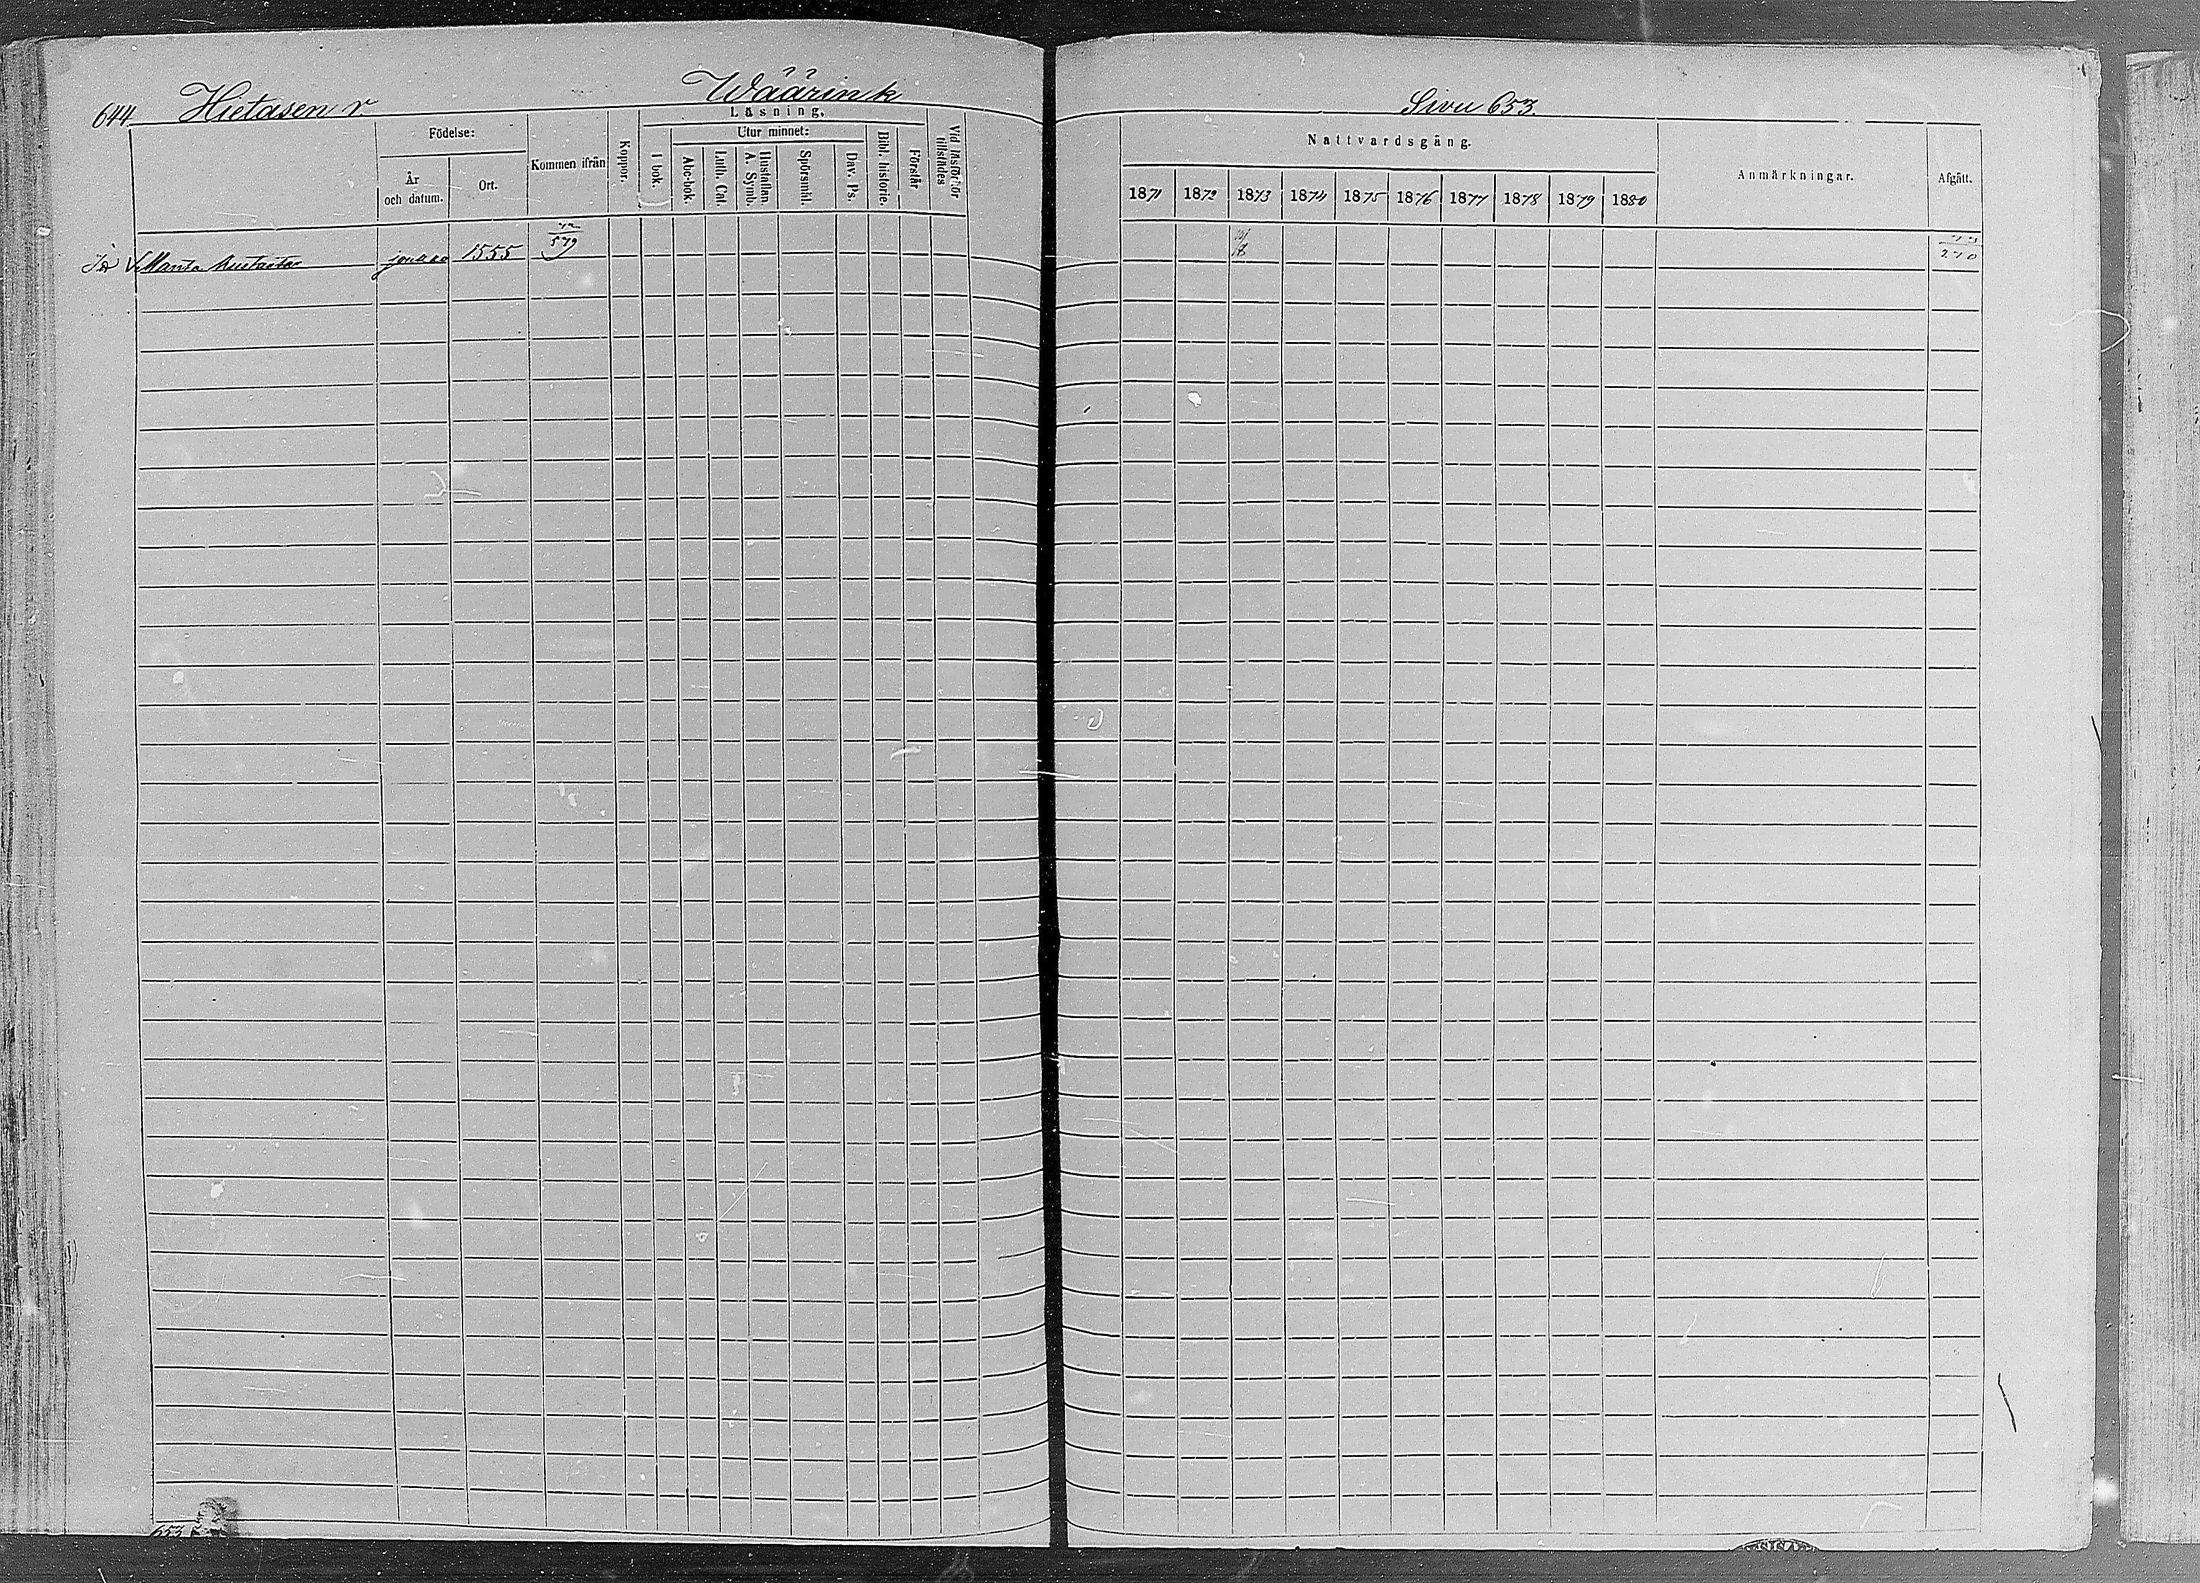 644 Hietasen r. Wäärin k Sivu 653.
Läsning. Nattvardsgång.
Födelse: Kommen ifrån Koppor. Utur minnet: Bibl. historie. Förstår Vid läsförhör tillstädes Anmärkningar. Afgått.
År och datum. Ort. I bok. Abc-bok. Luth. Cat. Hustaflan. A. Symb. Spörsmål. Dav. Ps. 1871 1872 1873 1874 1875 1876 1877 1878 1879 1880
72
579
1555 18 270
653